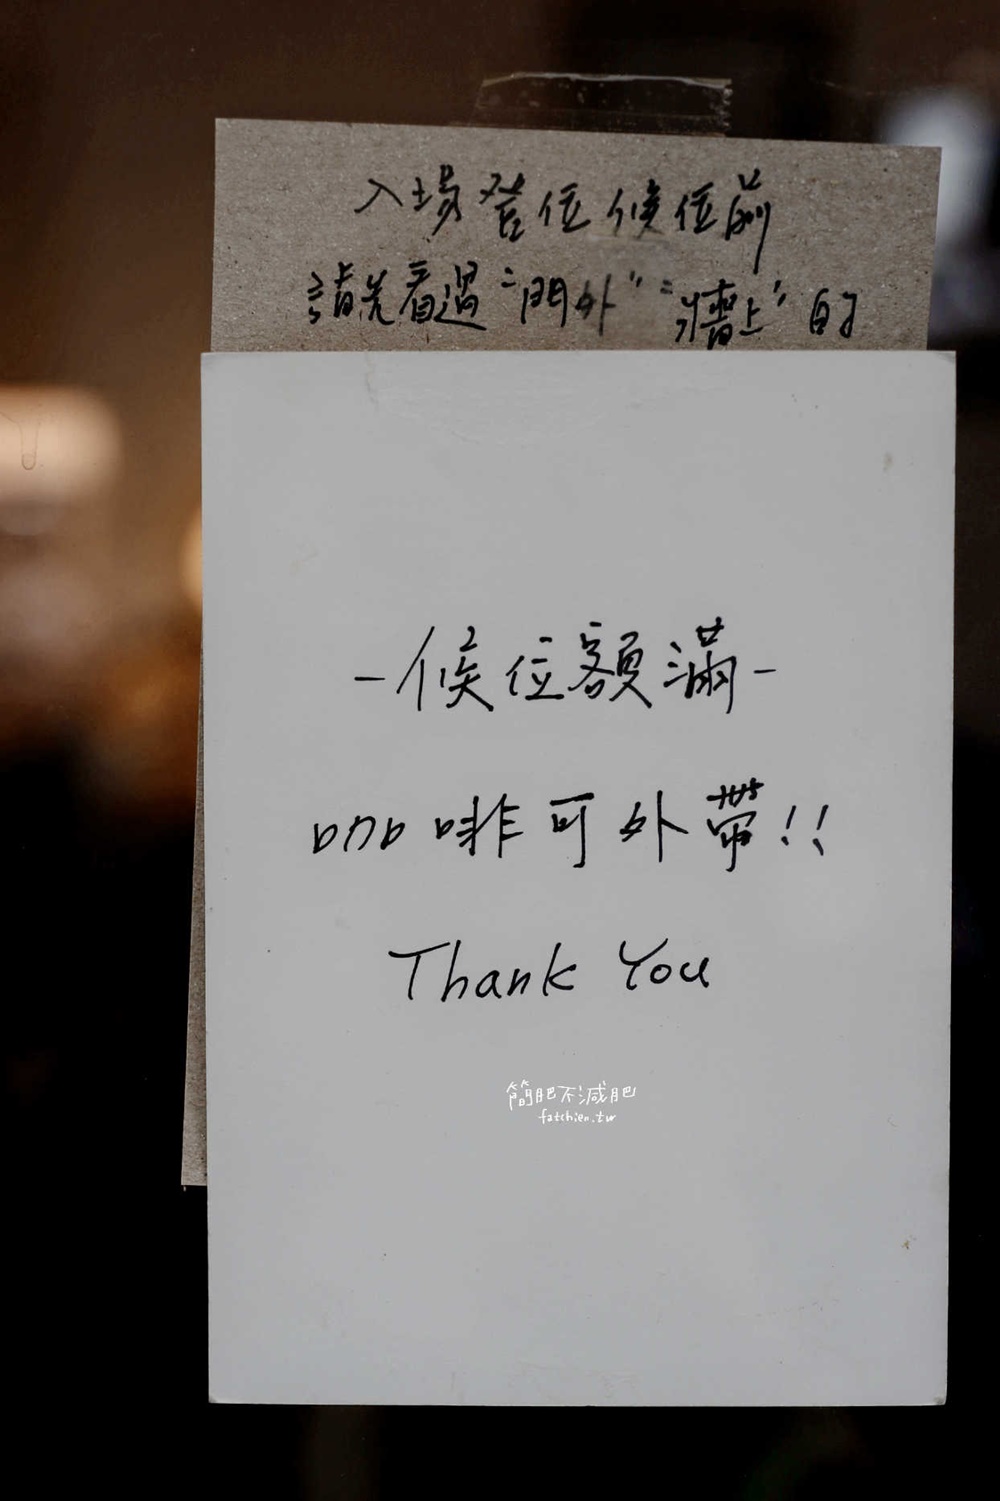 入場登位候位前
請先看過"門外" "牆上"的
-候位額滿-
咖啡可外帶!!
Thank You
簡肥不減肥
fatchien.tw